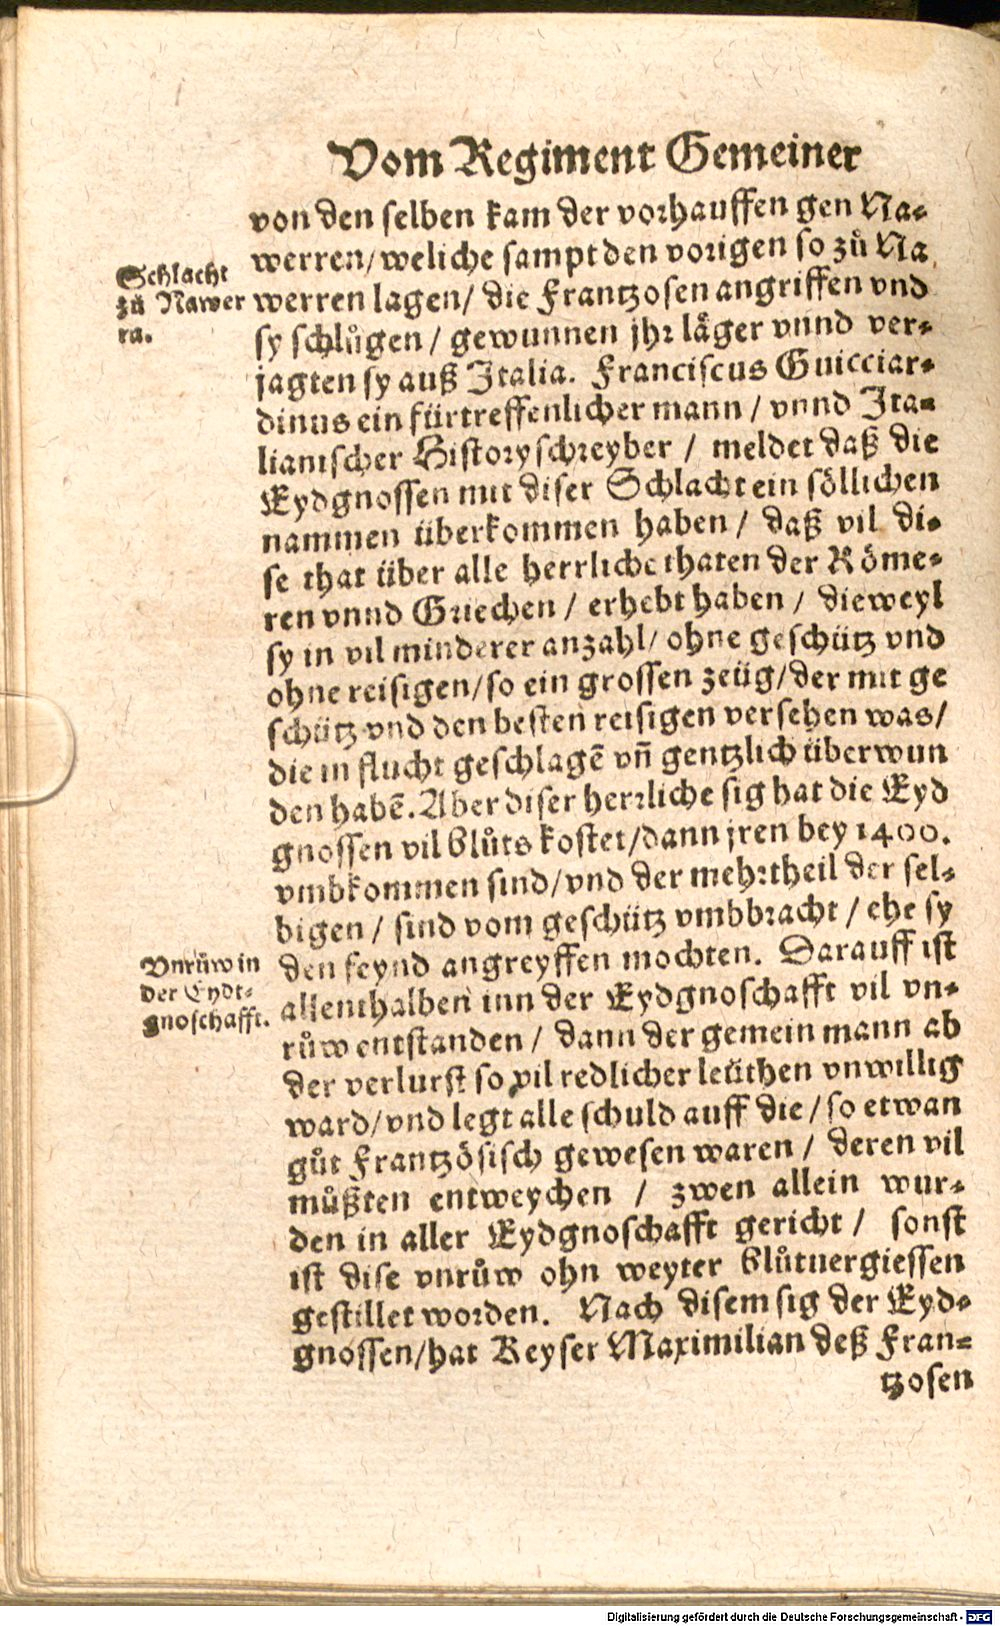 Vom Regiment Gemeiner
von den selben kam der vorhauffen gen Na-
werren/weliche sampt den vorigen so zů Na
Schlacht
zů Nawer
ra.
werren lagen/ die Frantzosen angriffen vnd
sy schlůgen / gewunnen jhr läger vnnd ver-
jagten sy auß Italia. Franciscus Guicciar-
dinus ein fürtreffenlicher mann / vnnd Ita-
lianischer Historyschreyber / meldet daß die
Eydgnossen mit diser Schlacht ein söllichen
nammen überkommen haben / daß vil di-
se that über alle herrliche thaten der Röme-
ren vnnd Griechen / erhebt haben / dieweyl
sy in vil minderer anzahl/ ohne geschütz vnd
ohne reisigen/so ein grossen zeüg/der mit ge
schütz vnd den besten reisigen versehen was/
die in flucht geschlagẽ vñ gentzlich überwun
den habẽ. Aber diser herrliche sig hat die Eyd
gnossen vil blůts kostet/dann jren bey 1400.
vmbkommen sind/vnd der mehrtheil der sel-
bigen / sind vom geschütz vmbbracht / ehe sy
den feynd angreyffen mochten. Darauff ist
Vnrůw in
der Eydt-
gnoschafft.
allenthalben inn der Eydgnoschafft vil vn-
růw entstanden / dann der gemein mann ab
der verlurst so vil redlicher leüthen vnwillig
ward/vnd legt alle schuld auff die / so etwan
gůt Frantzösisch gewesen waren / deren vil
můßten entweychen / zwen allein wur-
den in aller Eydgnoschafft gericht / sonst
ist dise vnrůw ohn weyter blůtuergiessen
gestillet worden. Nach disem sig der Eyd-
gnossen/hat Keyser Maximilian deß Fran-
tzosen
Digitalisierung gefördert durch die Deutsche Forschungsgemeinschaft - DFG